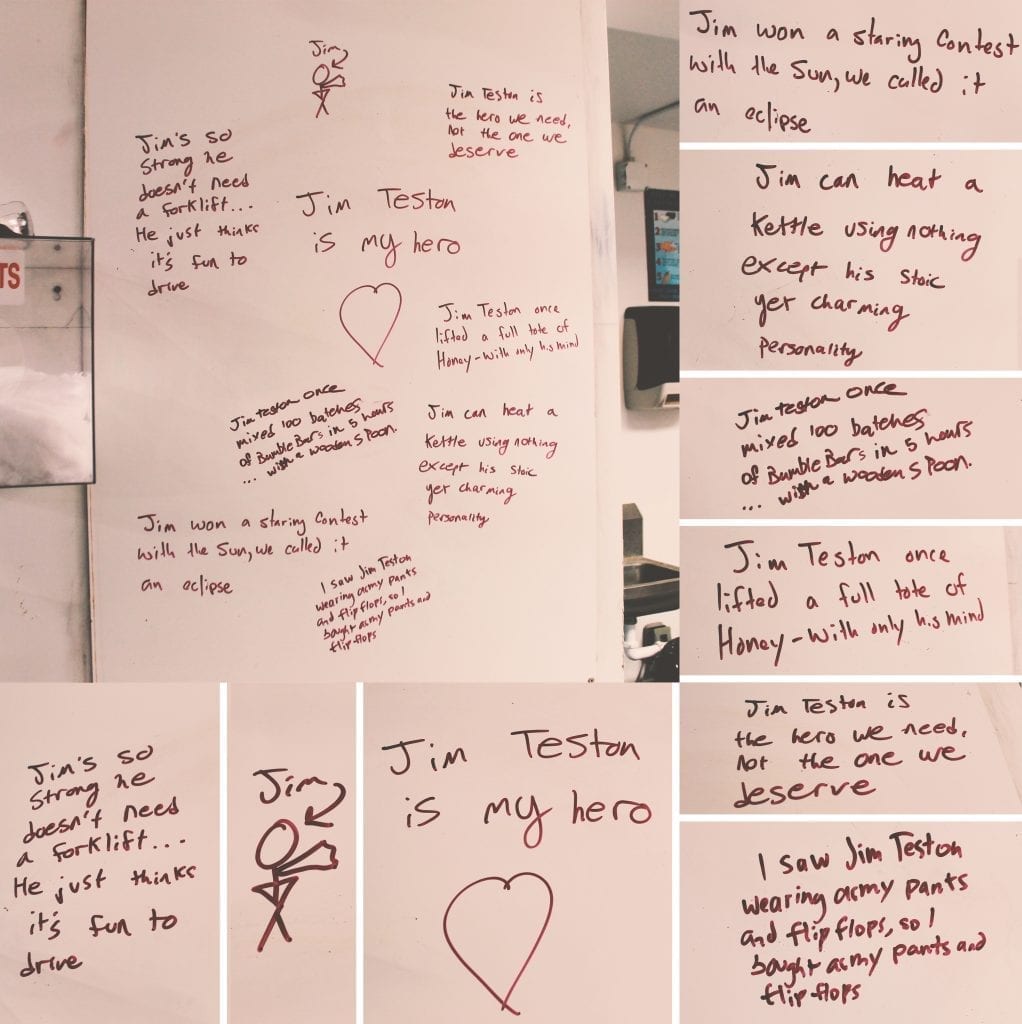 Jim
Jim Teston is
the hero we need,
not the one we
deserve
Jim's so
strong he
doesn't need
a forklift...
He just thinks
it's fun to
drive
Jim Teston
is my hero
Jim Teston once
lifted a full tote of
Honey-with only his mind
Jim Teston once
mixed 100 batches
of Bumble Bars in 5 hours
... with a wooden spoon.
Jim can heat a
kettle using nothing
except his stoic
yet charming
personality
Jim won a staring contest
with the Sun, we called it
an eclipse
I saw Jim Teston
wearing army pants
and flip flops, so I
bought army pants and
flip flops
TS
Jim won a staring contest
with the Sun, we called it
an eclipse
Jim can heat a
kettle using nothing
except his stoic
yet charming
personality
Jim Teston once
mixed 100 batches
of Bumble Bars in 5 hours
... with a wooden spoon.
Jim Teston once
lifted a full tote of
Honey-with only his mind
Jim Teston is
the hero we need,
not the one we
deserve
I saw Jim Teston
wearing army pants
and flip flops, so I
bought army pants and
flip flops
Jim's so
strong he
doesn't need
a forklift...
He just thinks
it's fun to
drive
Jim
Jim Teston
is my hero